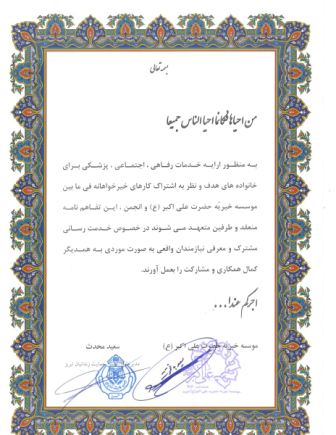 بسمه تعالی
من احیاها فکانما احیا الناس جمیعا
به منظور ارایه خدمات رفاهی ، اجتماعی ، پزشکی برای
خانواده های هدف و نظر به اشتراک کارهای خیرخواهانه فی ما بین
موسسه خیریه حضرت علی اکبر (ع) و انجمن ، این تفاهم نامه
منعقد و طرفین متعهد می شوند در خصوص خدمت رسانی
مشترک و معرفی نیازمندان واقعی به صورت موردی به همدیگر
کمال همکاری و مشارکت را بعمل آورند.
اجرکم عندا...
موسسه خیریه حضرت علی اکبر (ع)
سعید محدث